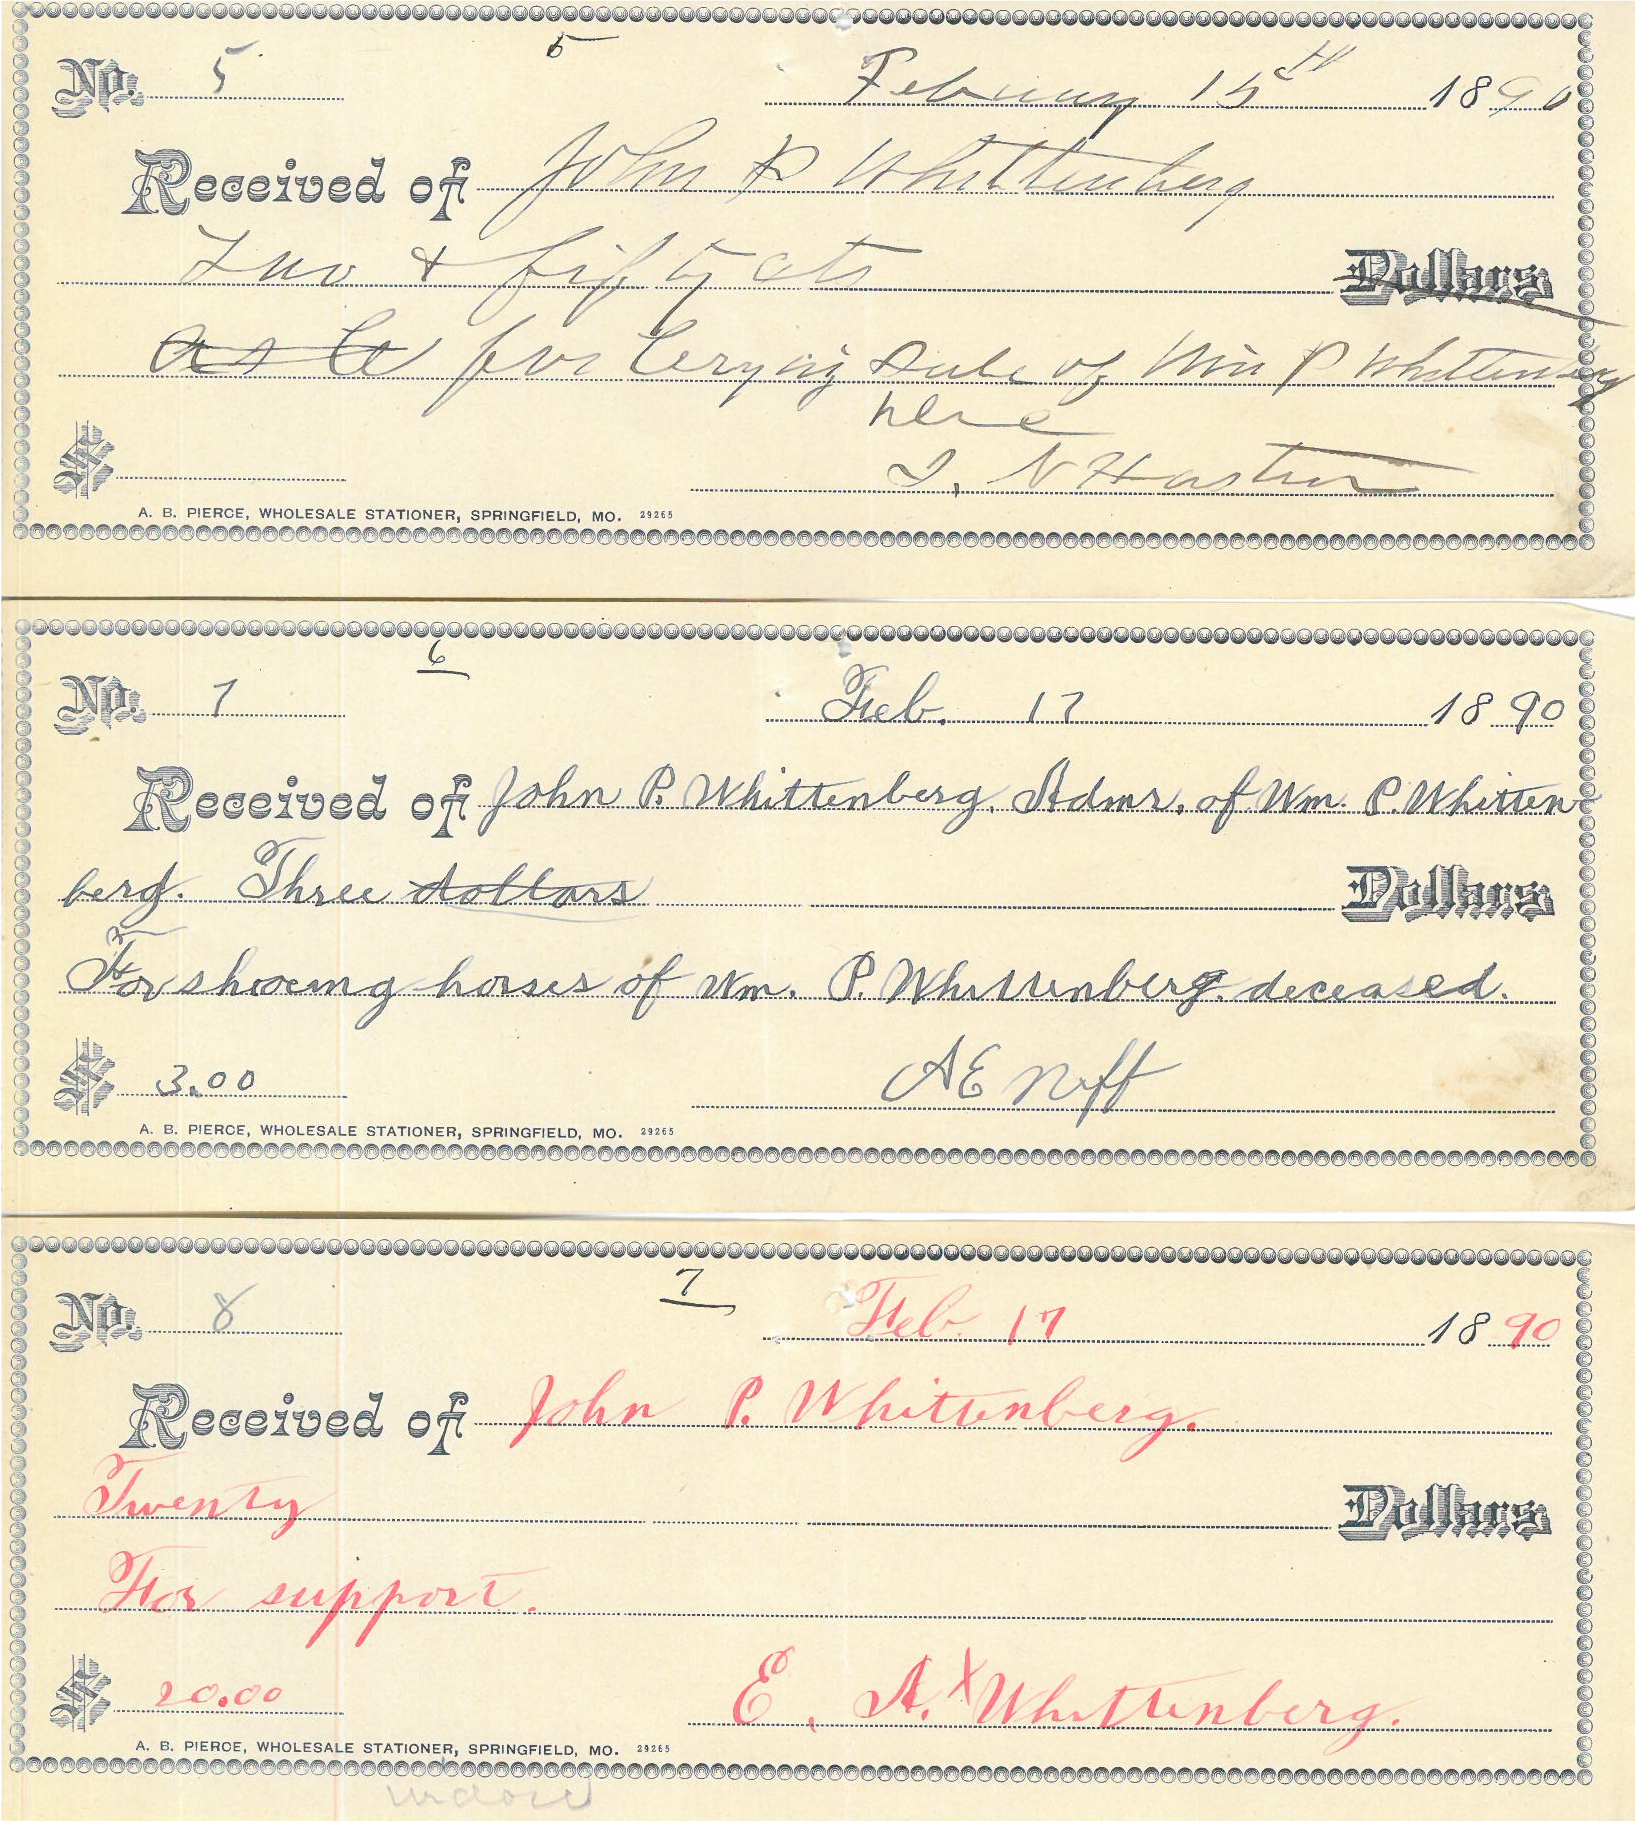 5
No. 5 February 15th 1890
Received of John P Whittenberg
Two & fifty cts Dollars
for Cerying Sale of Wm P Whittenberg
here
I. N Haston
$
A. B. PIERCE, WHOLESALE STATIONER, SPRINGFIELD, MO. 29265
6
No. 7 Feb. 17 1890
Received of John P. Whittenberg, Admr. of Wm. P. Whitten-
berg. Three dollars Dollars
For shooeing horses of Wm. P. Whittenberg. deceased.
$ 3.00 A E Neff
A. B. PIERCE, WHOLESALE STATIONER, SPRINGFIELD, MO. 29265
7
No. 8 Feb. 17 1890
Received of John P. Whittenberg.
Twenty Dollars
For support.
$ 20.00 E. A. X Whittenberg.
A. B. PIERCE, WHOLESALE STATIONER, SPRINGFIELD, MO. 29265